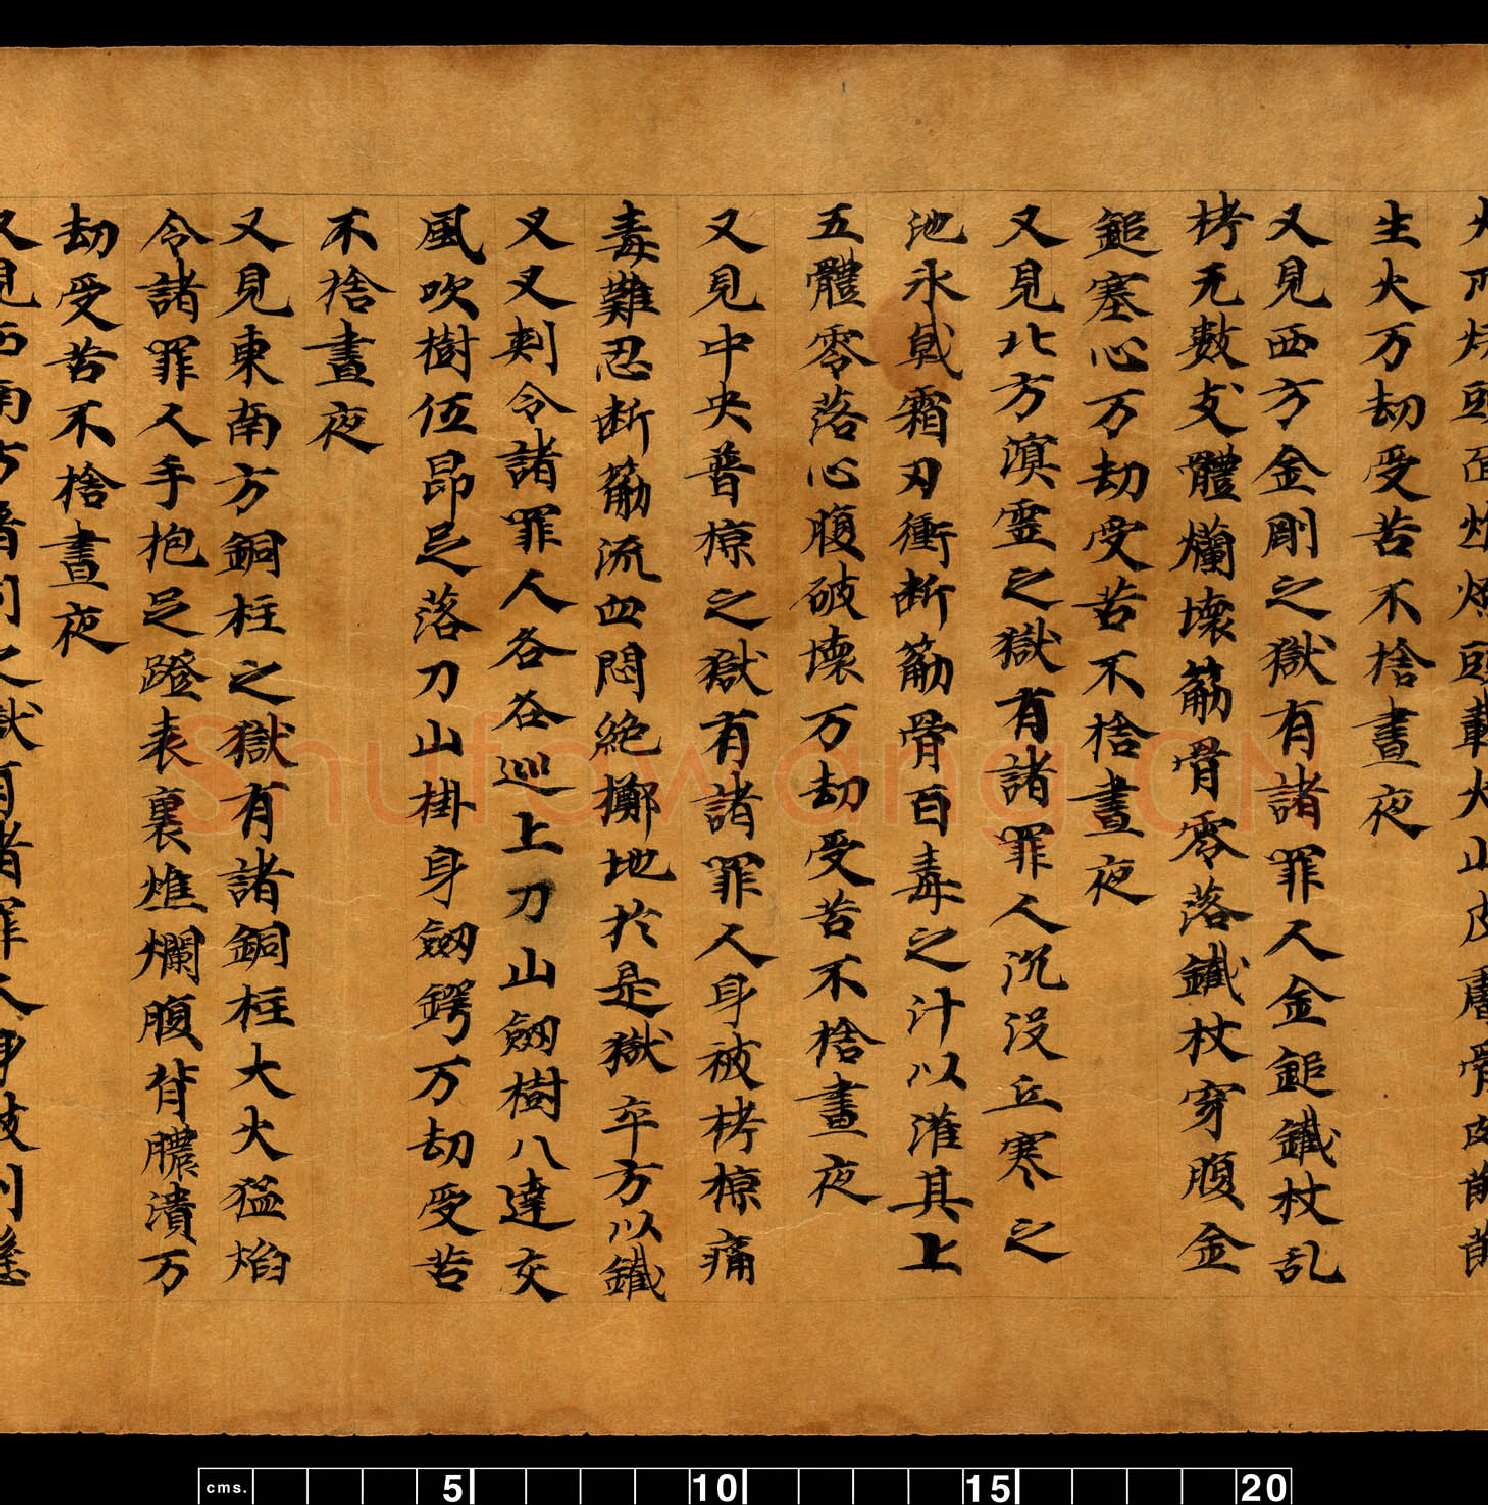 火山皮膚骨
生火万劫受苦不捨晝夜
又見西方金剛之獄有諸罪人金鎚鐵杖乱
栲无數支體爛壞筋骨零落鐵杖穿腹金
鎚塞心万劫受苦不捨晝夜
又見北方溟霊之獄有諸罪人沉没丘寒之
池氷戟霜刃衝断筋骨百毒之汁以潅其上
五體零落心腹破壞万劫受苦不捨晝夜
又見中央普椋之獄有諸罪人身被栲椋痛
毒難忍断筋流血悶絶擲地於是獄卒方以鐵
叉叉刾令諸罪人各各巡上刀山劔樹八達交
風吹樹伍昂足落刀山掛身劔鍔万劫受苦
不捨晝夜
又見東南方銅柱之獄有諸銅柱大火猛焰
令諸罪人手抱足蹬表裏燋爛腹背膿潰万
劫受苦不捨晝夜
又見西南方
Shufawang.CN
cms. 5 10 15 20